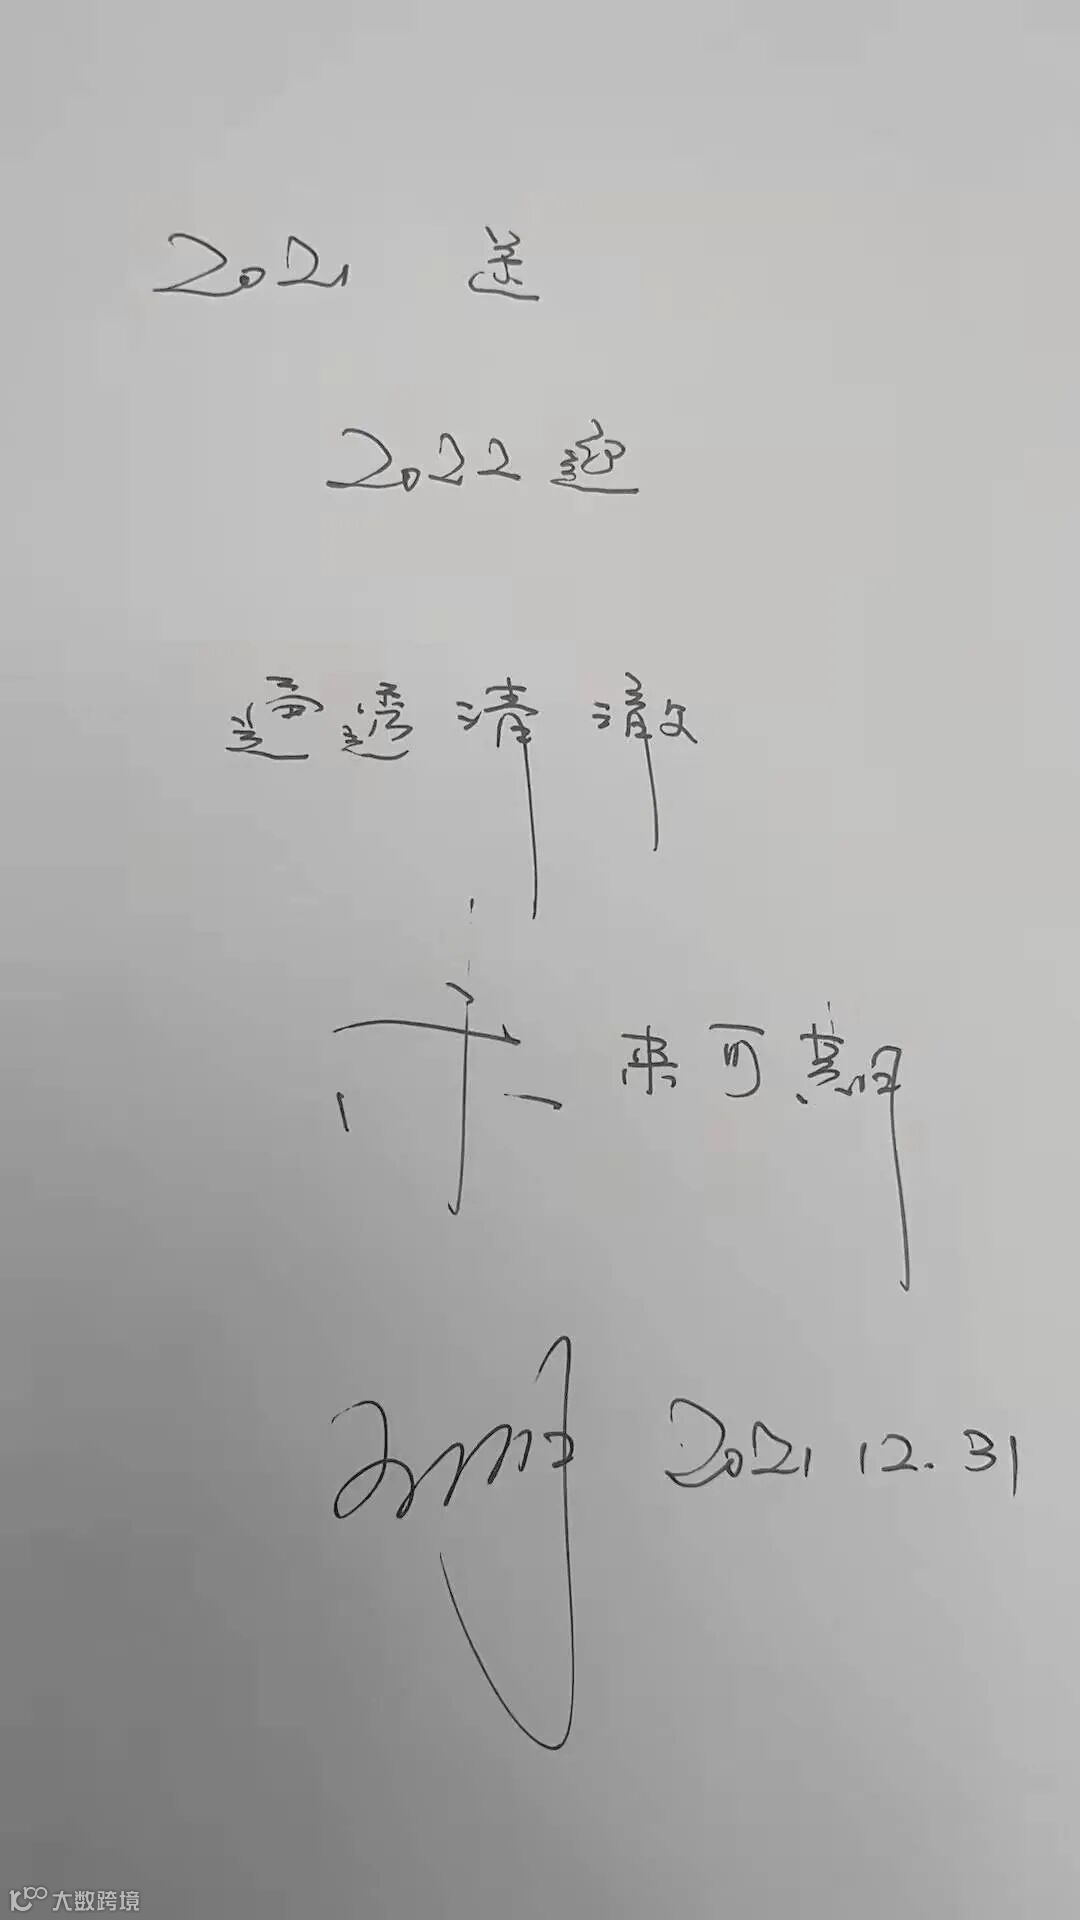 2021 送
2022 迎
通透清澈
未来可期
2021.12.31
大数跨境